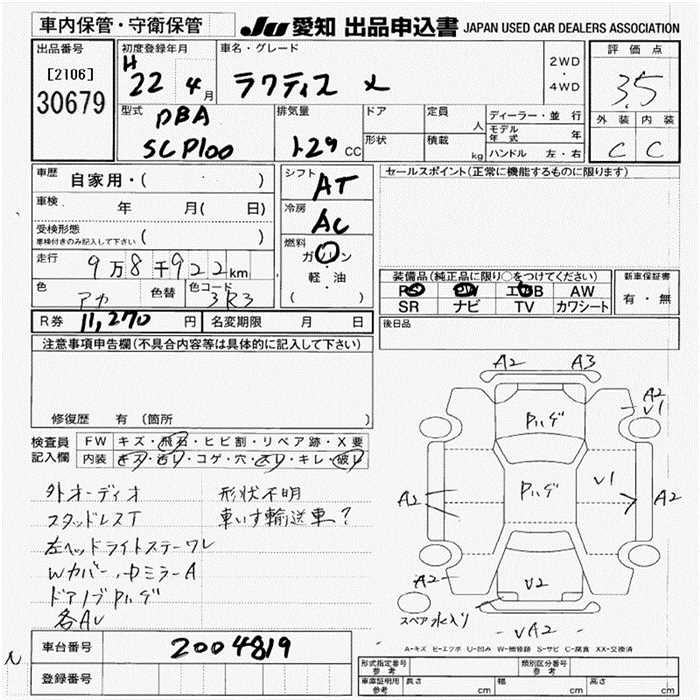 車内保管・守衛保管
JU 愛知 出品申込書 JAPAN USED CAR DEALERS ASSOCIATION
出品番号 [2106] 30679
初度登録年月 H 22 4月
車名・グレード ラクティス
2WD ・ 4WD
評価点 3.5
外装 内装
C C
型式 DBA SCP100
排気量 1.29 CC
ドア
形状
定員 人
積載 kg
ディーラー・並行
モデル年式 年
ハンドル 左・右
車歴 自家用・( )
車検 年 月( 日)
受検形態 車検付きのみ記入して下さい ( )
走行 9万8千922km
色 アカ 色替 色コード 3R3
シフト AT
冷房 AC
燃料 ガソリン
軽・油
( )
セールスポイント(正常に機能するものに限ります)
装備品(純正品に限り○をつけてください)
PS PW エアB AW
SR ナビ TV カワシート
新車保証書
有・無
後日品
R券 11,270 円 名変期限 月 日
注意事項申告欄(不具合内容等は具体的に記入して下さい)
修復歴 有 (箇所 )
検査員記入欄
FW キズ・飛石・ヒビ割・リペア跡・X要
内装 キズ・汚レ・コゲ・穴・スレ・キレ・破レ
外オーディオ 形状不明
スタッドレスT 車いす輸送車?
左ヘッドライトステーワレ
Wカバー・中ミラーA
ドアノブPハゲ
各AU
A2 A3
A2
V1
Pハゲ
Pハゲ
V1
A2 A2
A2
V2
スペア 水入り
VA2
A-キズ E-エクボ U-凹み W-補修跡 S-サビ C-腐食 XX-交換済
車台番号 2004819
登録番号
形式指定番号 参考 類別区分番号 参考
車庫証明用 参考 長さ cm 幅 cm 高さ cm